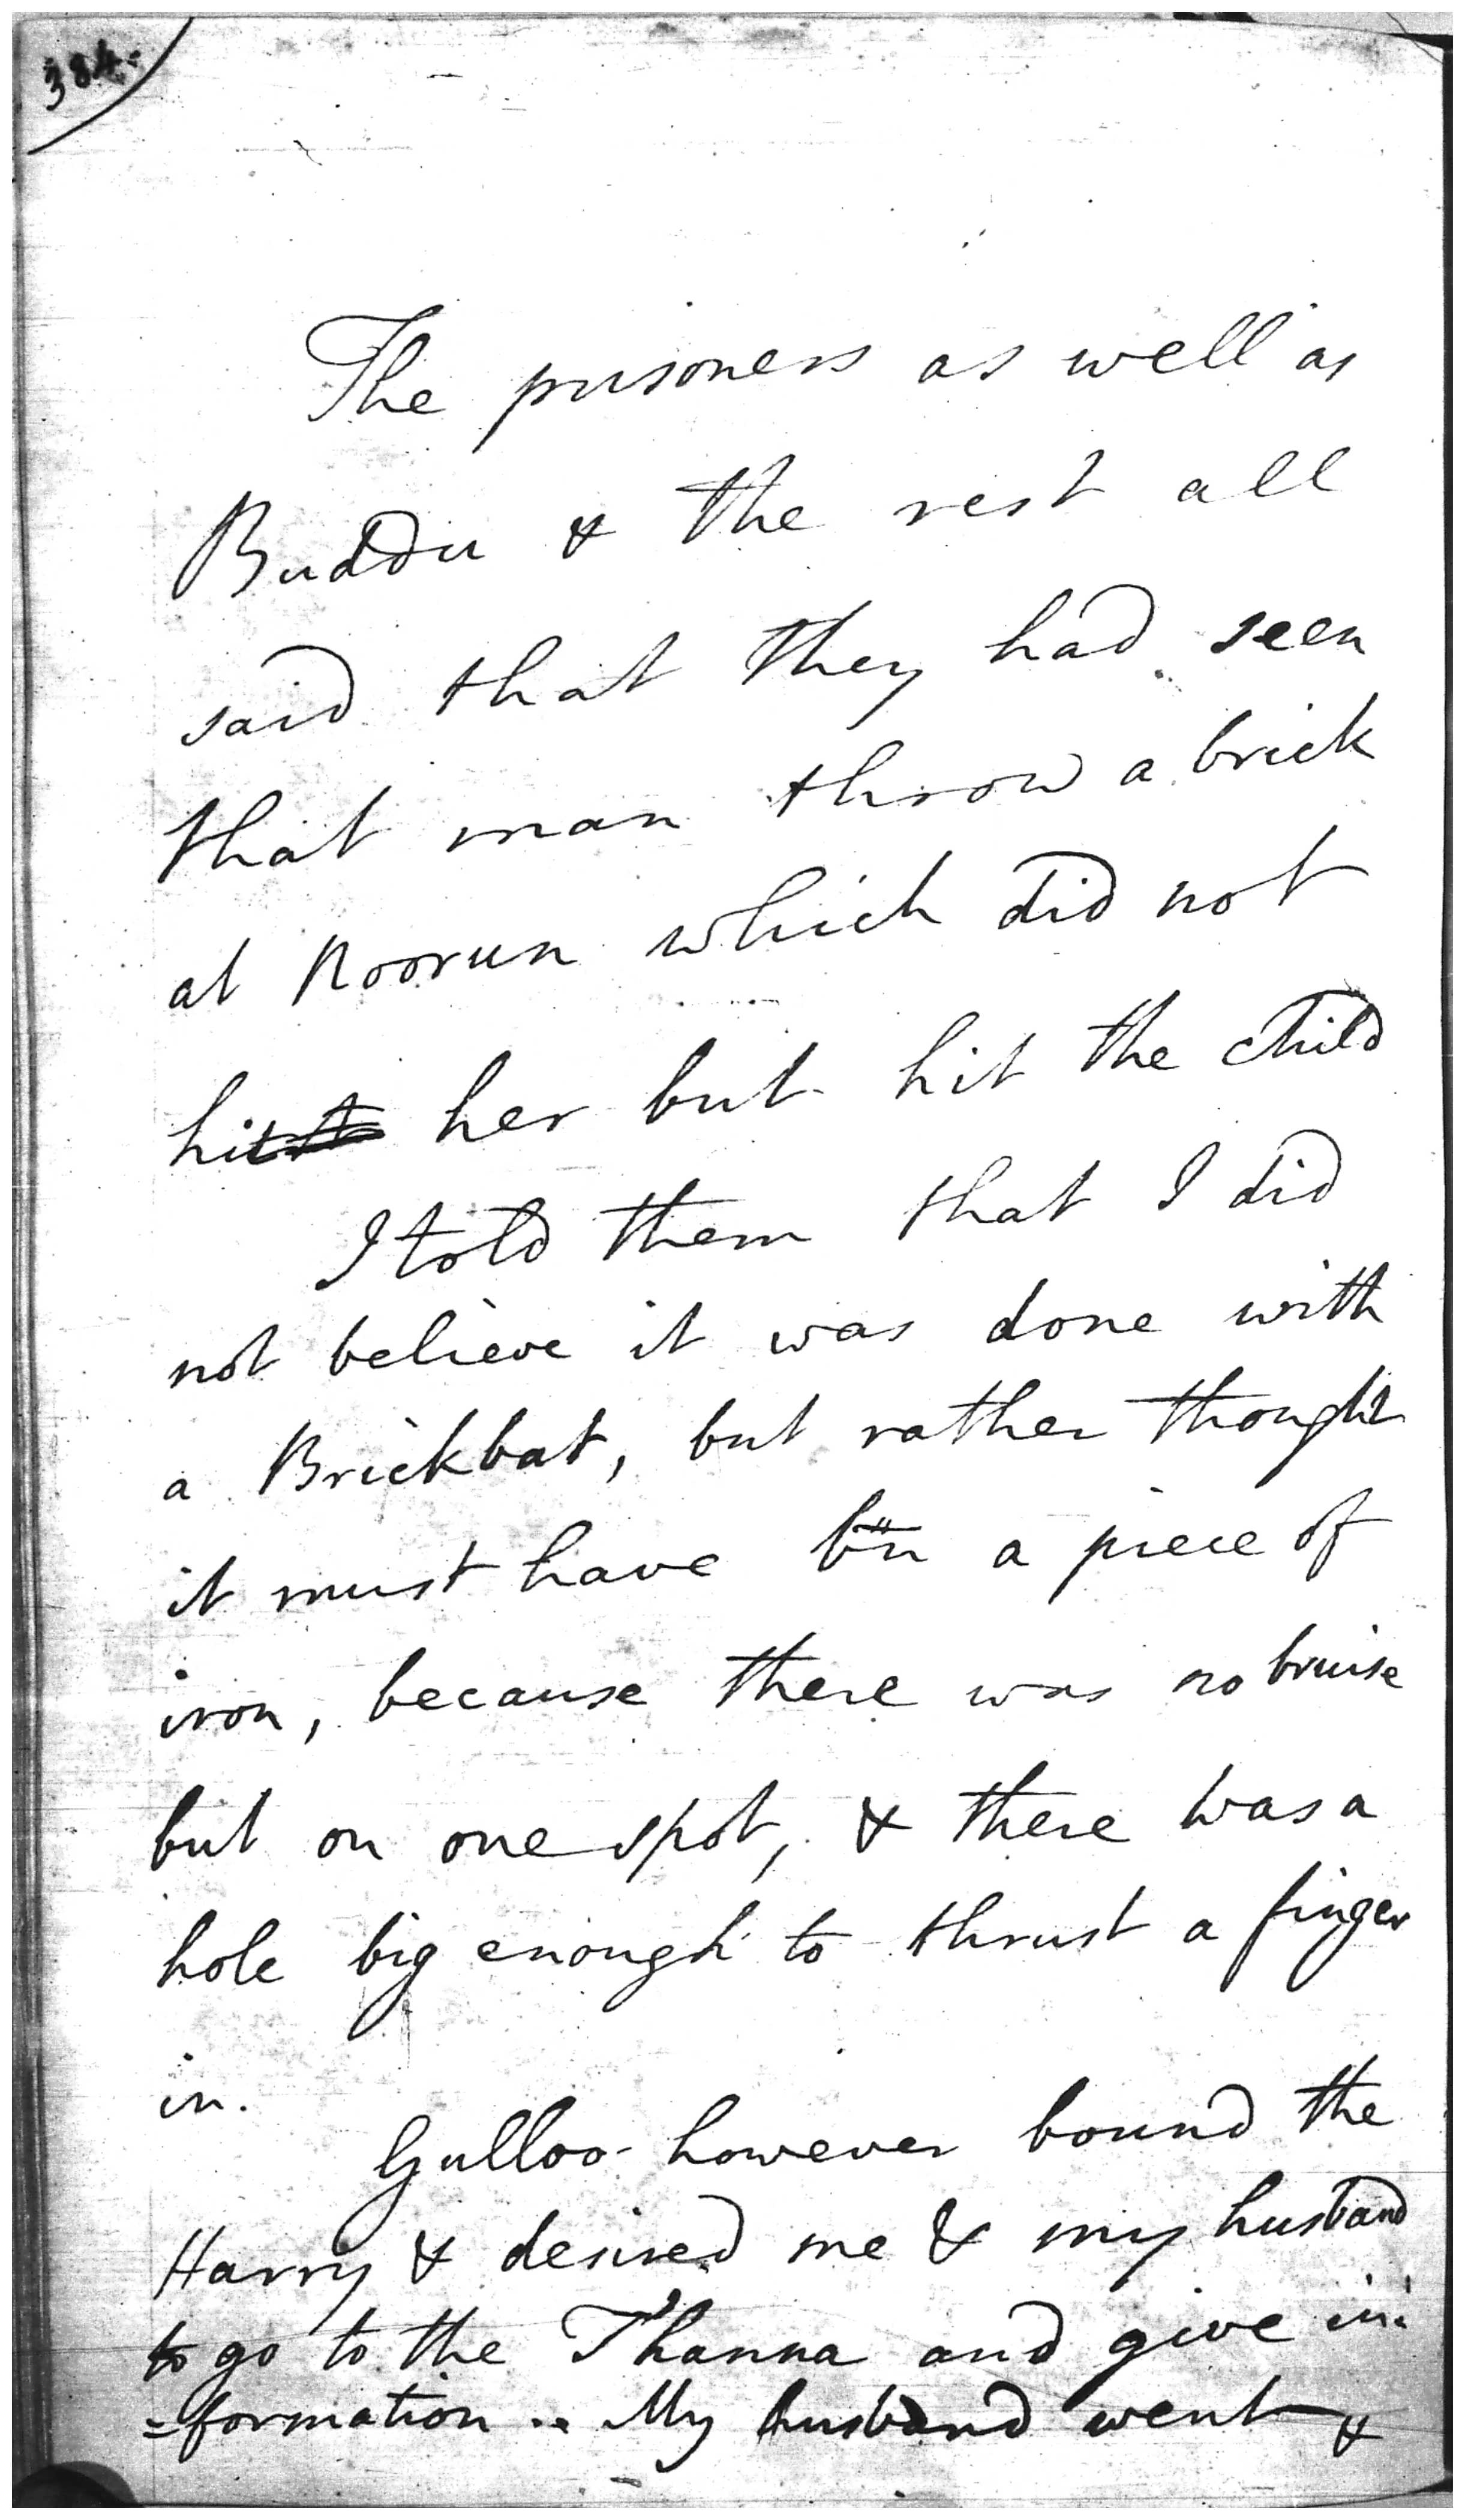 384.
The prisoners as well as
Buddu & the rest all
said that they had seen
that man throw a brick
at Noorun which did not
hit her but hit the child
I told them that I did
not believe it was done with
a Brickbat, but rather thought
it must have been a piece of
iron, because there was no bruise
but on one spot, & there was a
hole big enough to thrust a finger
in.
Gulloo however bound the
Harry & desired me & my husband
to go to the Thanna and give in:
=formation .. My husband went &